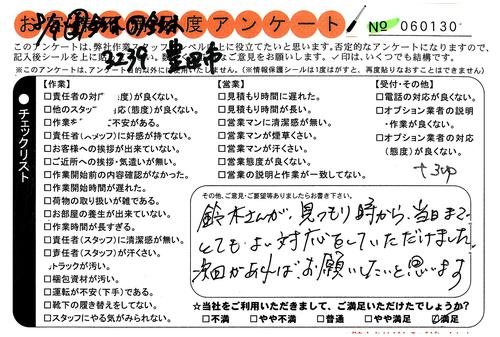 お客様 度アンケート
№ 060130
2239 豊田市
このアンケートは、弊社作業スタッフ レベル向上に役立てたいと思います。否定的なアンケートになりますので、
記入後シールを上に ご意見をお願いします。✓印は、いくつでも結構です。
※このアンケートは、アンケート目的以外には 使用いたしません。(※情報保護シールは1度がすと、再度貼りなおすことはできません)
●チェックリスト
【作業】
□責任者の対 度)が良くない。
□他のスタッ 応(態度)が良くない。
□作業 に不安がある。
□責任者(スタッフ)に好感が持てない。
□お客様への挨拶が出来ていない。
□ご近所への挨拶・気遣いが無い。
□作業開始前の内容確認がなかった。
□作業開始時間が遅れた。
□荷物の取り扱いが雑である。
□お部屋の養生が出来ていない。
□作業時間が長すぎる。
□責任者(スタッフ)に清潔感が無い。
□責任者(スタッフ)が汗くさい。
□トラックが汚い。
□梱包資材が汚い。
□運転が不安(下手)である。
□靴下の履き替えをしてない。
□スタッフにやる気がみられない。
【営業】
□見積もり時間に遅れた。
□見積もり時間が長い。
□営業マンに清潔感が無い。
□営業マンが煙草くさい。
□営業マンが汗くさい。
□営業態度が良くない。
□営業の説明と作業が一致してない。
【受付・その他】
□電話の対応が良くない。
□オプション業者の説明
・作業が良くない。
□オプション業者の対応
(態度)が良くない。
その他、ご意見・ご要望等ありましたらお書き下さい。
鈴木さんが、見つもり時から、当日まで、
とてもよい対応をしていただけました。
次回があれば、お願いしたいと思います
☆当社をご利用いただきまして、ご満足いただけたでしょうか?
□不満 □やや不満 □普通 □やや満足 ☑満足